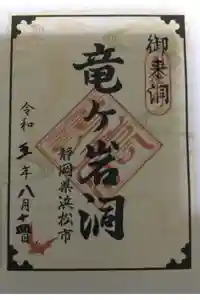 御来洞
竜ヶ岩洞
静岡県浜松市
令和五年八月十四日